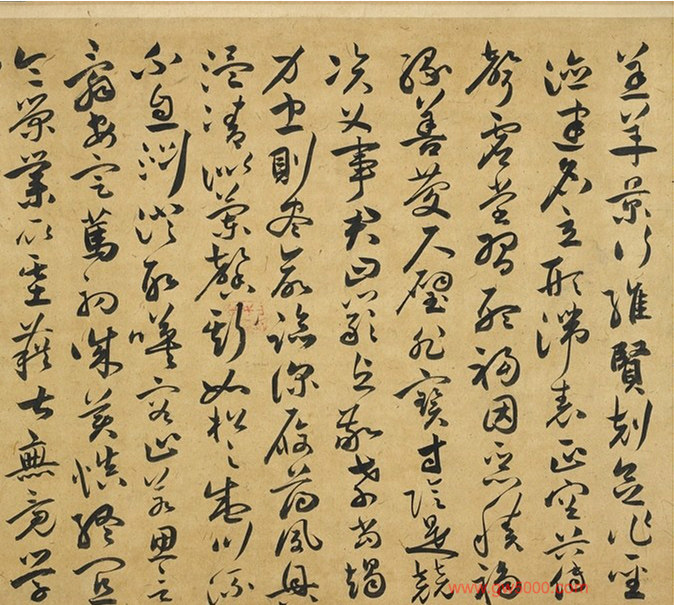 羔羊景行維賢剋念作聖
德建名立形端表正空谷傳
聲虛堂習聽禍因惡積福
緣善慶尺璧非寶寸陰是競
資父事君曰嚴與敬孝當竭
力忠則盡命臨深履薄夙興
溫清似蘭馨斯如松之盛川流
不息淵澄取映容止若思言
辭安定篤初誠美慎終宜
令榮業所基藉甚無竟學